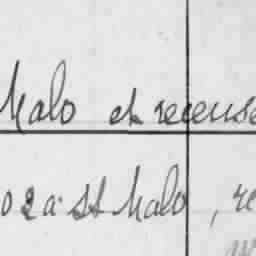 Malo et recense
02 à St Malo, re